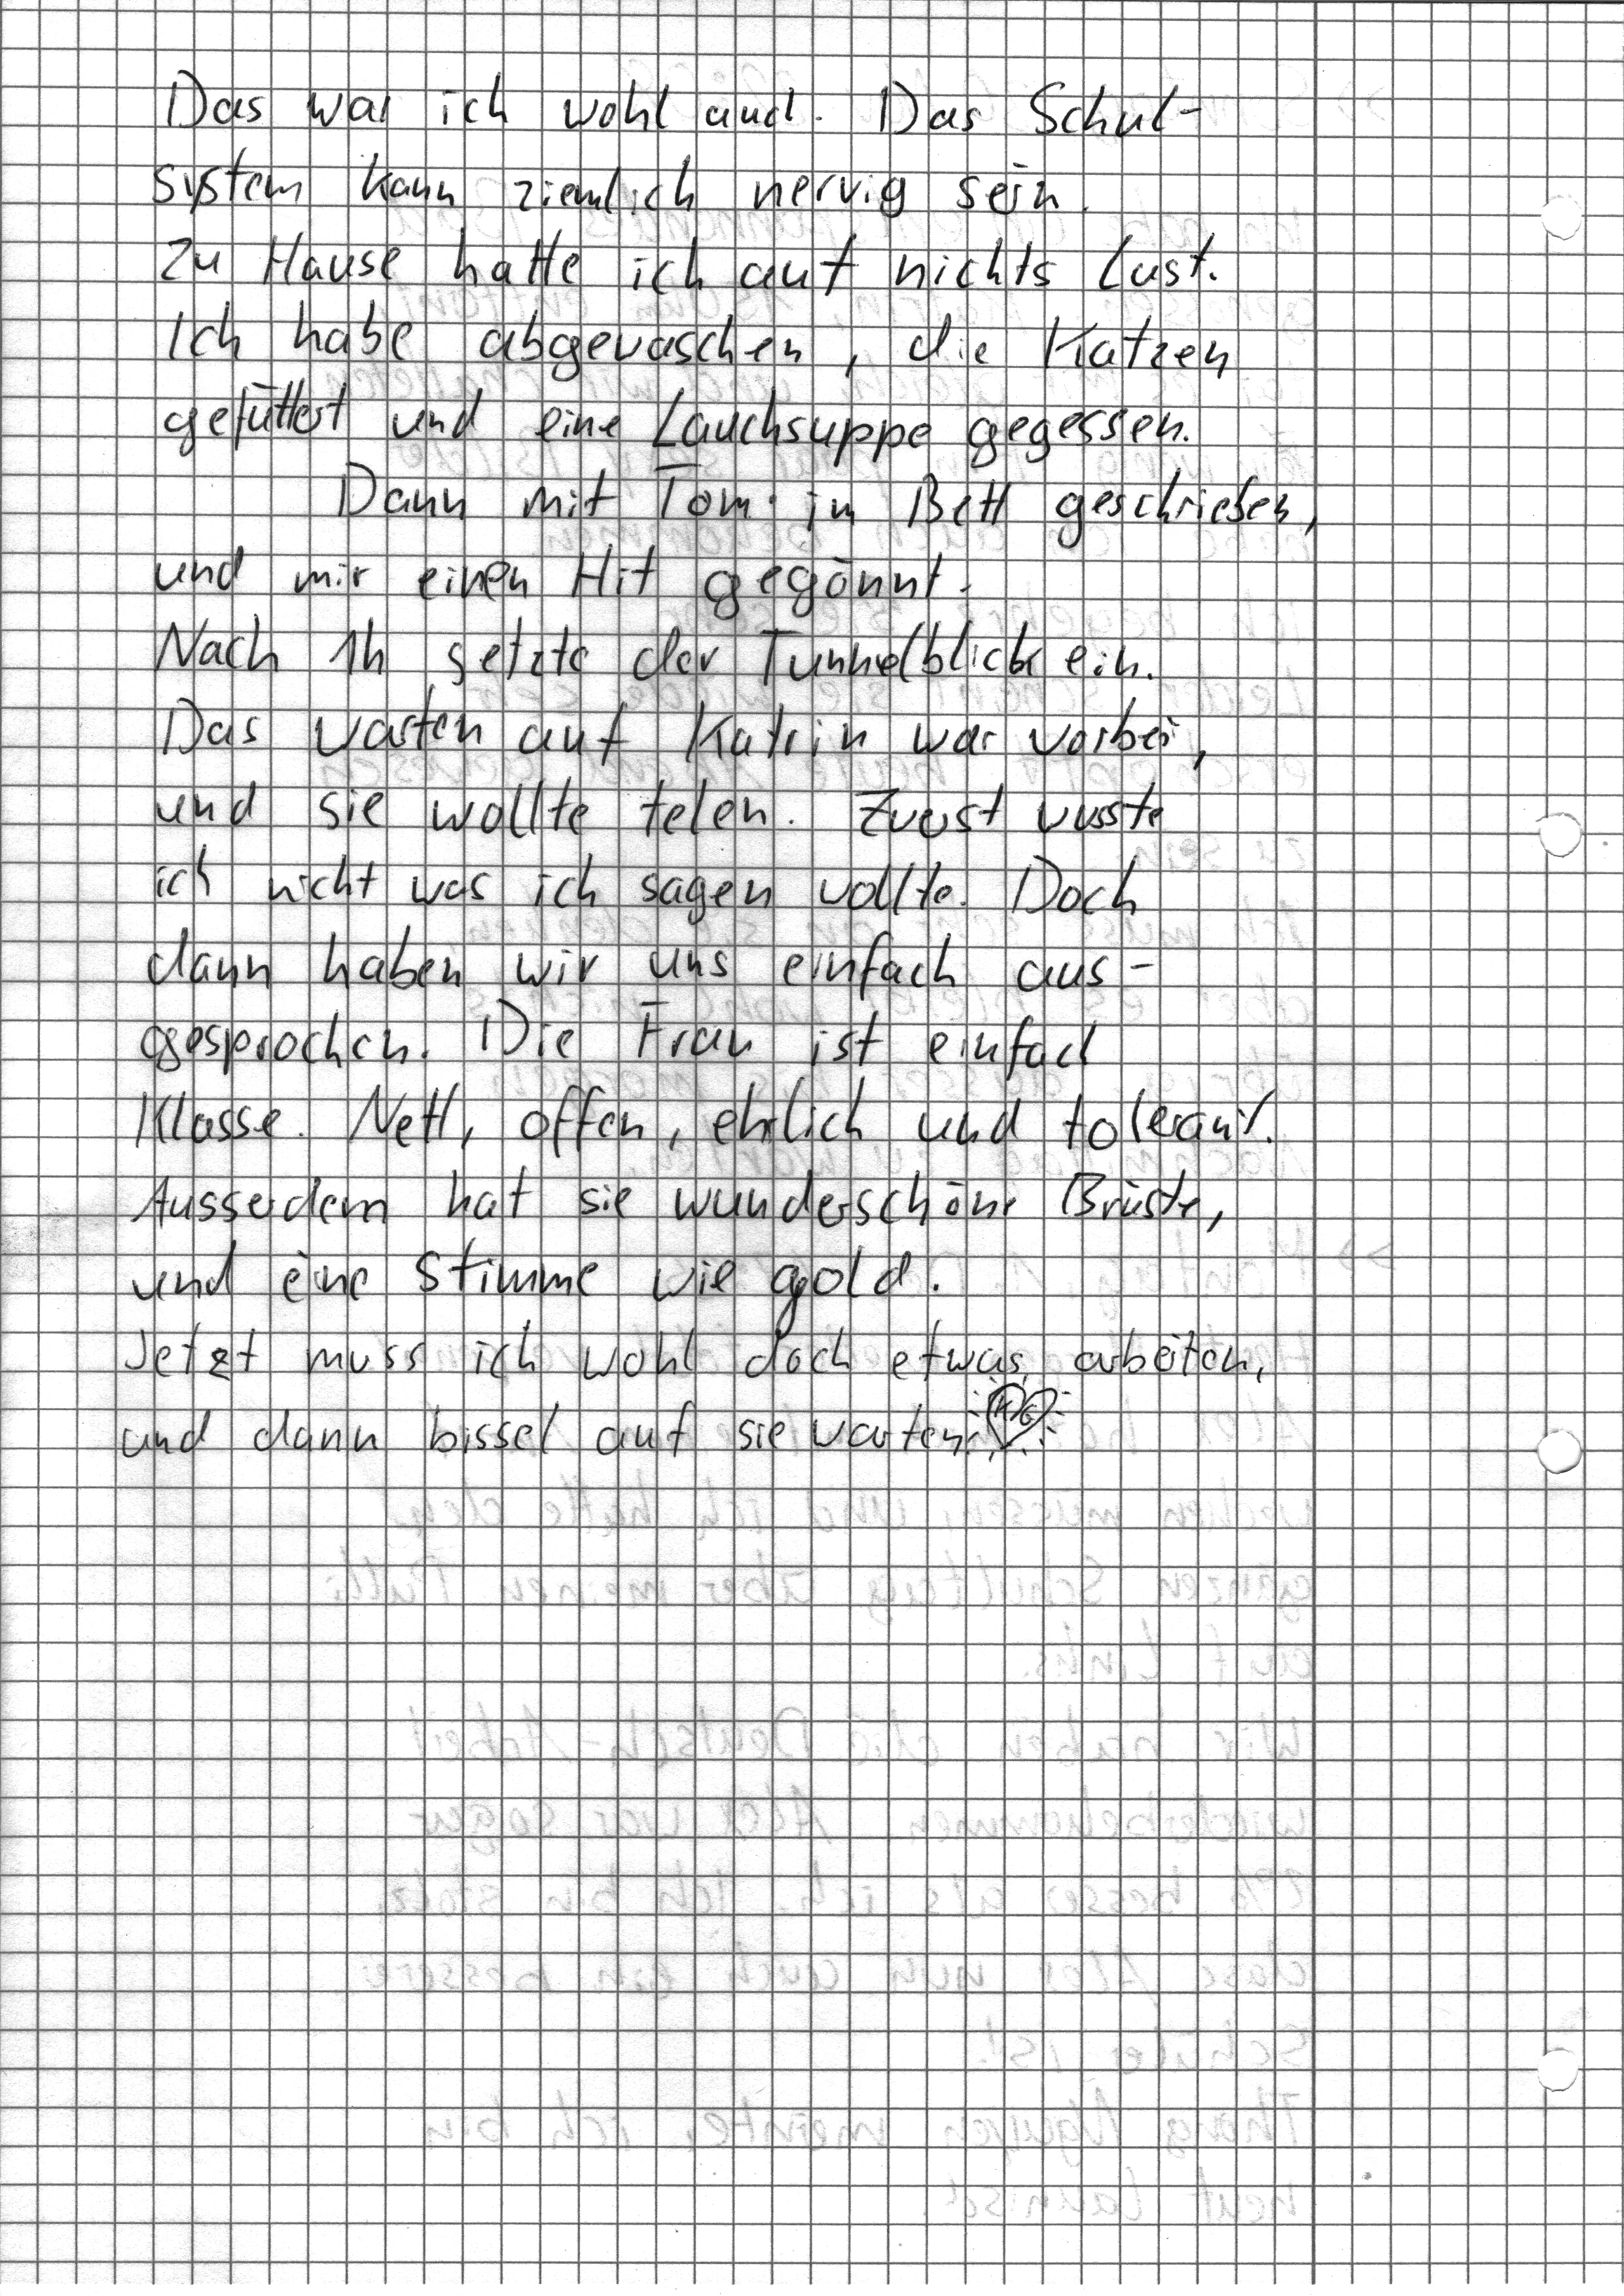 Das war ich wohl auch. Das Schul-
system kann ziemlich nervig sein.
Zu Hause hatte ich auf nichts Lust.
Ich habe abgewaschen, die Katzen
gefüttert und eine Lauchsuppe gegessen.
Dann mit Tom im Bett geschrieben,
und mir einen Hit gegönnt.
Nach 1h setzte der Tunnelblick ein.
Das warten auf Katrin war vorbei,
und sie wollte telen. Zuerst wusste
ich nicht was ich sagen wollte. Doch
dann haben wir uns einfach aus-
gesprochen. Die Frau ist einfach
Klasse. Nett, offen, ehrlich und tolerant.
Ausserdem hat sie wunderschöne Brüste,
und eine Stimme wie gold.
Jetzt muss ich wohl doch etwas arbeiten,
und dann bissel auf sie warten.